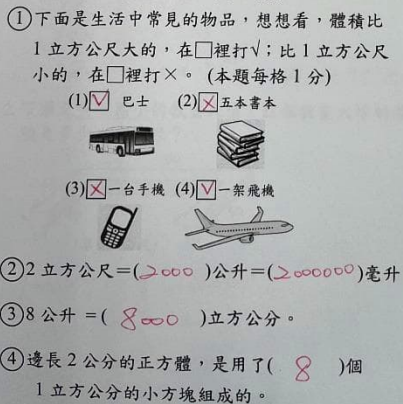 ①下面是生活中常見的物品，想想看，體積比
1立方公尺大的，在□裡打√；比1立方公尺
小的，在□裡打×。(本題每格1分)
(1)☑巴士 (2)☒五本書本
(3)☒一台手機 (4)☑一架飛機
②2立方公尺=(2000)公升=(2000000)毫升
③8公升=(8000)立方公分。
④邊長2公分的正方體，是用了(8)個
1立方公分的小方塊組成的。